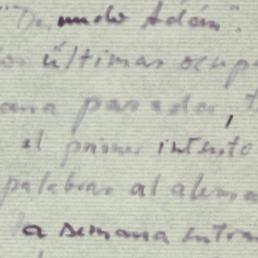 "Desnudo Adán".
últimas ocup
ana pasada, t
el primer intento
palabras al alema
la semana entra